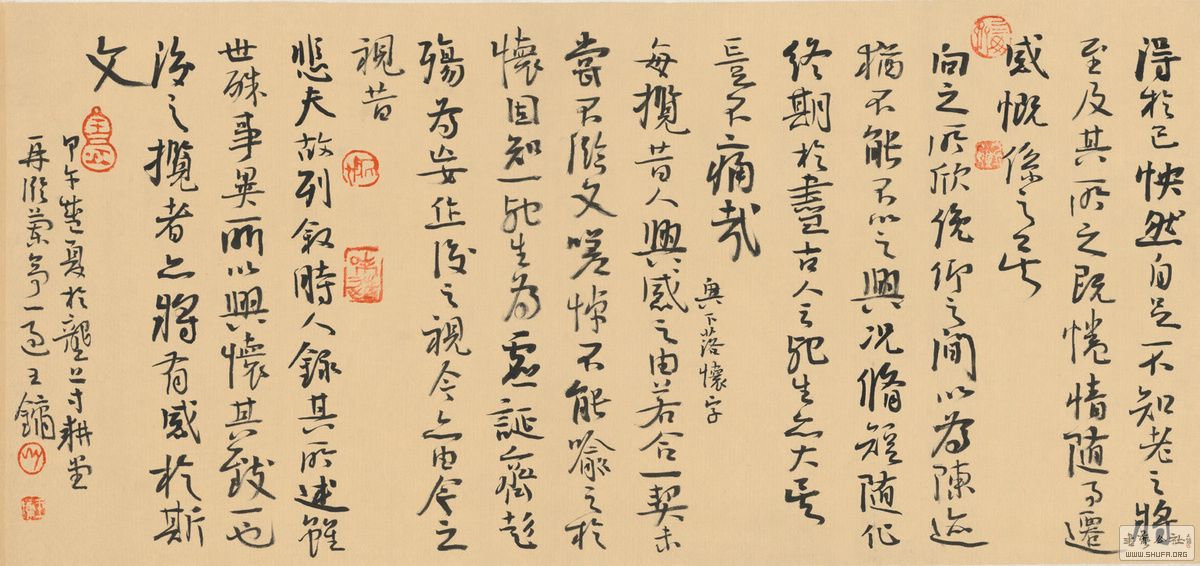 得於己怏然自足不知老之將
至及其所之既惓情隨事遷
感慨係之矣
向之所欣俛仰之間以為陳迹
猶不能不以之興況脩短隨化
終期於盡古人云死生亦大矣
豈不痛哉
興下落懷字
每攬昔人興感之由若合一契未
嘗不臨文嗟悼不能喻之於
懷固知一死生為虛誕齊彭
殤為妄作後之視今亦由今之
視昔
悲夫故列敘時人錄其所述雖
世殊事異所以興懷其致一也
後之攬者亦將有感於斯
文
甲午夏於壟上寸耕堂
再臨蘭亭一過王鏞
書法公社
WWW.SHUFA.ORG